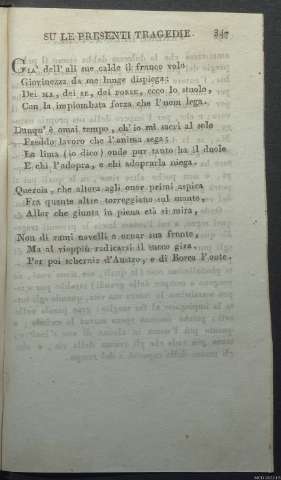 SU LE PRESENTI TRAGEDIE. 347
GIA' dell'ali sue calde il franco volo
Giovinezza da me lunge dispiega;
Dei MA, dei SE, dei FORSE, ecco lo stuolo,
Con la impiombata forza che l'uom lega.
Dunqu'è omai tempo, ch'io mi sacri al solo
Freddo lavoro che l'anima sega;
La lima (io dico) onde pur tanto ha il duolo
E chi l'adopra, e chi adoprarla niega.
Quercia, che altera agli onor primi aspira
Fra quante altre torreggino sul monte,
Allor che giunta in piena età si mira,
Non di rami novelli a ornar sua fronte,
Ma al vieppiù radicarsi il succo gira,
Per poi schernir d'Austro, e di Borea l'onte.